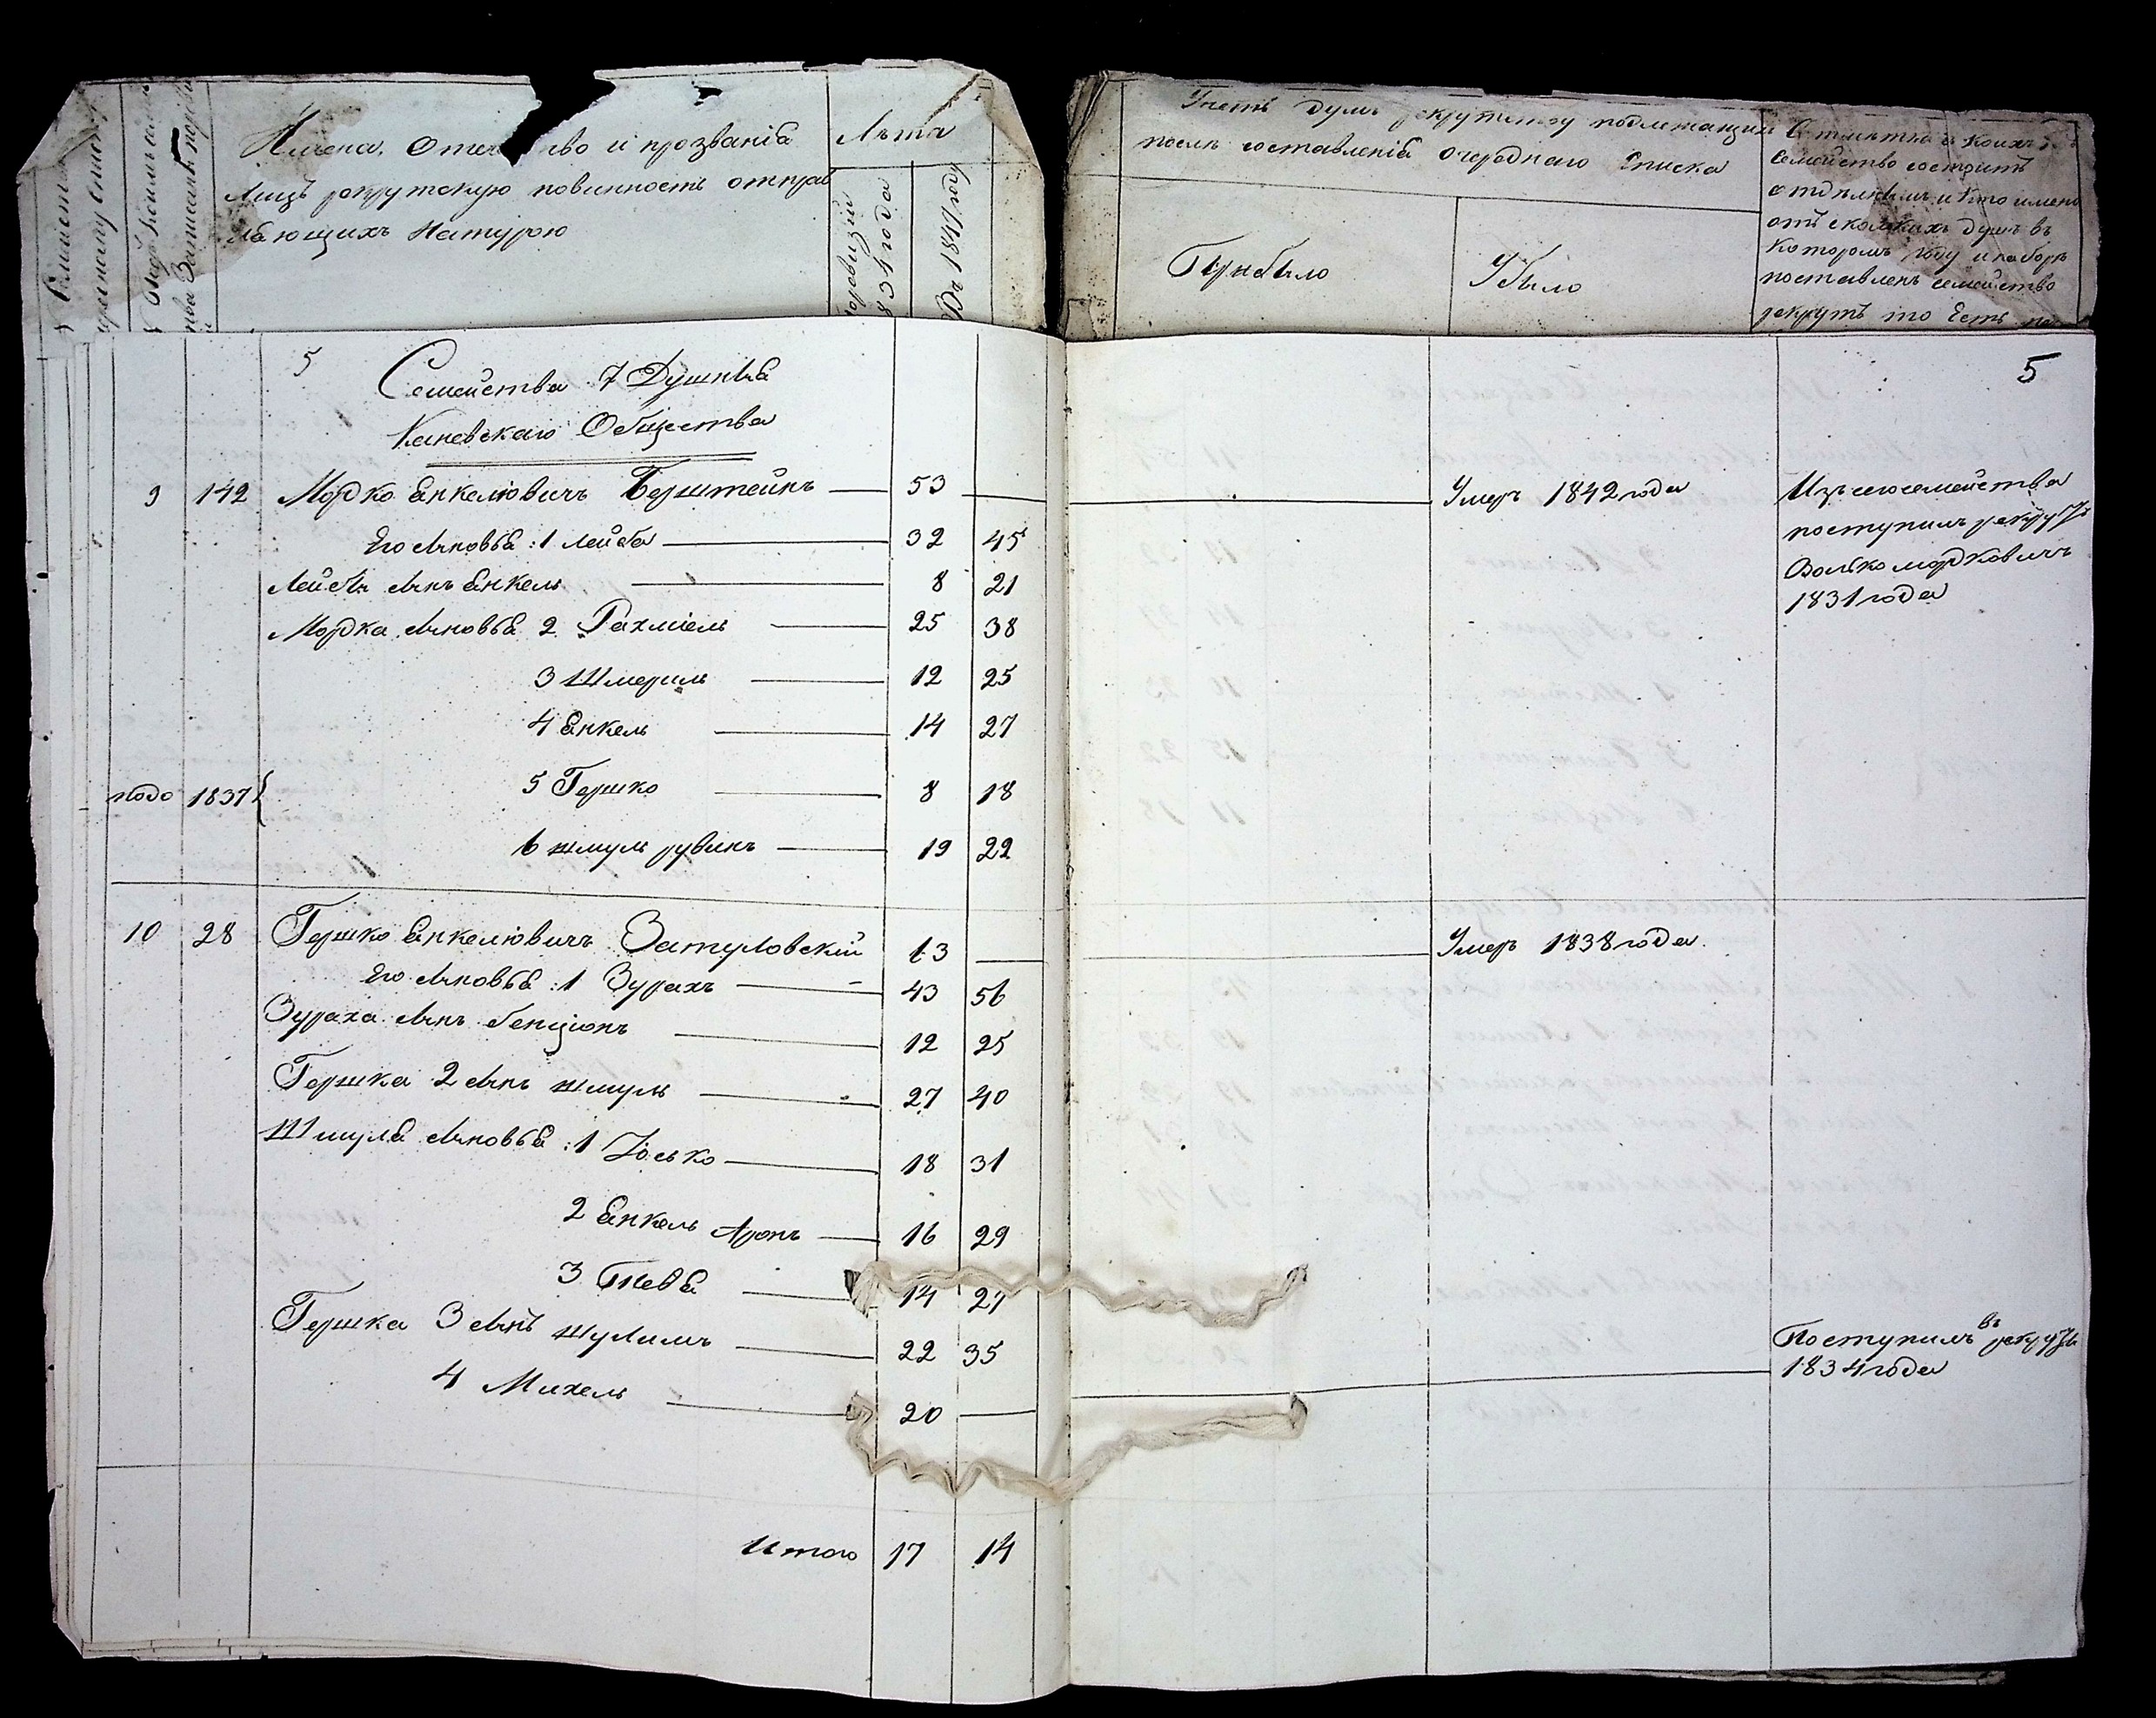 Имена, отечество и прозвания
лицъ рекрутскую повинность отправ
ляющихъ натурою
Лета
По ревизiи
1834 года
Въ 1847 году
Счетъ душъ рекрутству подлежащих
после составления очереднаго списка
Прибыло
Убыло
Отметка в коихъ
семейство состоитъ
отделкамъ и кто именно
отъ сколькихъ душъ въ
которомъ году и наборе
поставленъ семейство
рекрутъ то есть
5
5
Семейства 7 Душныя
Каневскаго Общества
9 142 Мордко Енкелiовичъ Берштейнъ 53 Умеръ 1842 года
Его сыновья: 1 Лейба 32 45
Лейбы сынъ Енкель 8 21
Мордка сыновья 2 Рахмiель 25 38
3 Шмериль 12 25
4 Енкель 14 27
подо 1837 5 Гершко 8 18
6 Шмуль рувинъ 19 22
Изъ сего семейства
поступилъ рекрутъ
Волько Мордковичъ
1831 года
10 28 Гершко Енкелiовичъ Затуловскiй 63 Умеръ 1838 года.
Его сыновья: 1 Зурахъ 43 56
Зураха сынъ бенцiонъ 12 25
Гершка 2 сынъ шмуль 27 40
Шмуля сыновья: 1 Iосько 18 31
2 Енкель Аронъ 16 29
3 14 27
Гершка 3 сынъ шулимъ 22 35
4 Михель 20
Поступилъ въ рекруты
1834 года
Итого 17 14